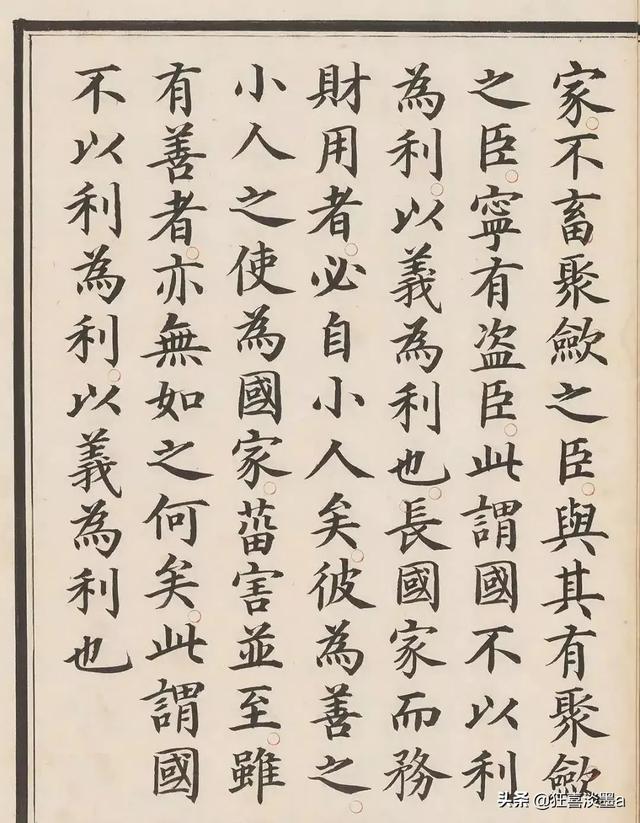 家。不畜聚歛之臣。與其有聚歛
之臣。寧有盗臣。此謂國不以利
為利。以義為利也。長國家而務
財用者。必自小人矣。彼為善之。
小人之使為國家。菑害並至。雖
有善者。亦無如之何矣。此謂國
不以利為利。以義為利也
头条 @狂喜淡墨a